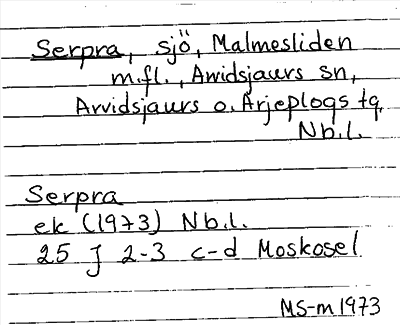 Serpra, sjö, Malmesliden
m.fl., Arvidsjaurs sn,
Arvidsjaurs o. Arjeplogs tg,
Nb.l.
Serpra
ek (1973) Nb.l.
25 J 2-3 c-d Moskosel
MS-m 1973